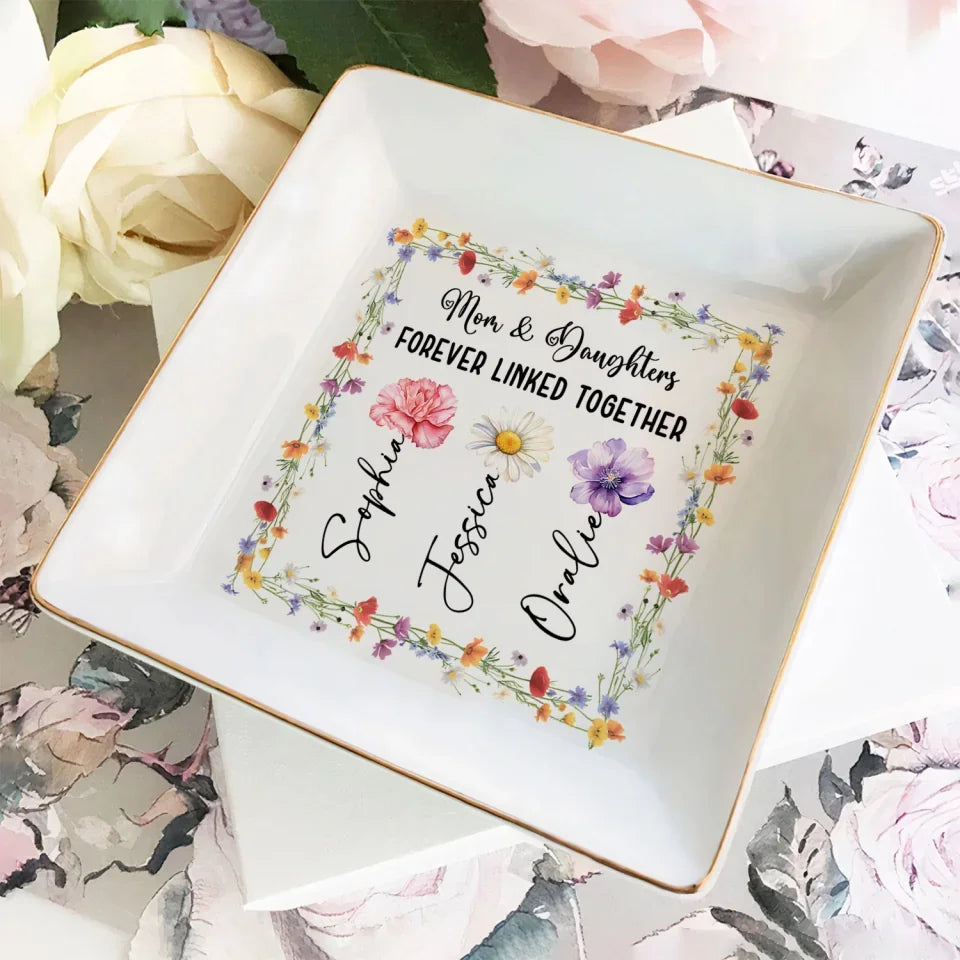 Mom & Daughters
FOREVER LINKED TOGETHER
Sophia
Jessica
Oralie